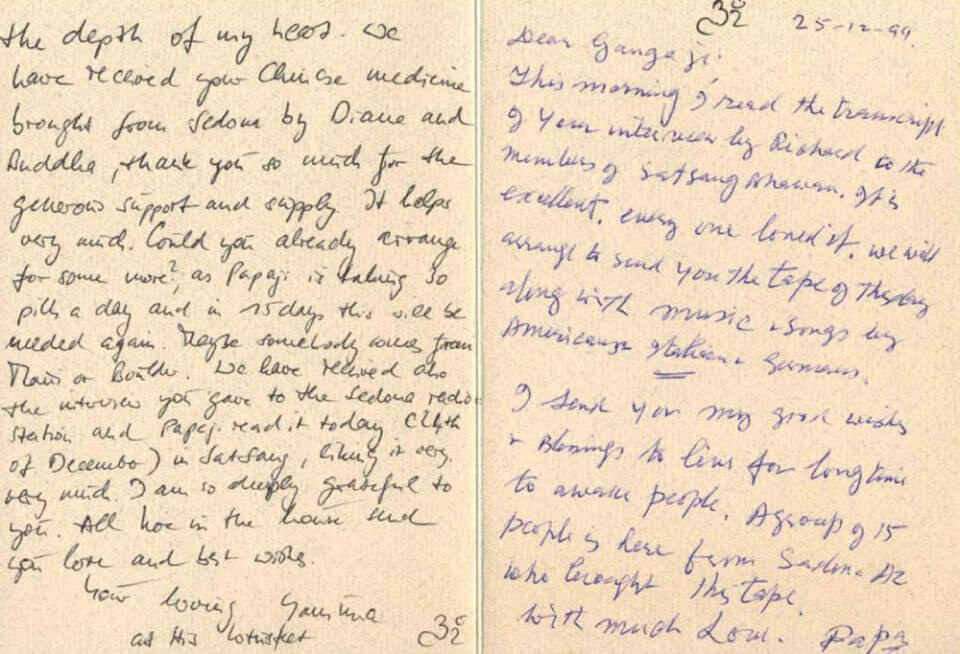 the depth of my heart. We
have received your Chinese medicine
brought from Sedona by Diane and
Buddha, thank you so much for the
generous support and supply. It helps
very much. Could you already arrange
for some more? as Papaji is taking 30
pills a day and in 15 days this will be
needed again. Maybe somebody comes from
Maui or Boulder. We have received also
the interview you gave to the Sedona radio-
station and Papaji read it today (24th
of December) in Satsang, liking it very,
very much. I am so deeply grateful to
you. All here in the house send
you love and best wishes.
Your loving Yamuna
at His lotusfeet
ॐ
ॐ 25-12-94.
Dear Ganga ji:
This morning I read the transcript
of your interview by Richard to the
members of Satsang Bhawan. It is
excellent, every one loved it. we will
arrange to send you the tape of this day
along with music & songs by
Americans Italian & Germans.
I send you my good wishes
& Blessings to live for long time
to awake people. A group of 15
people is here from Sedona Az
who brought this tape.
with much Love. Papa